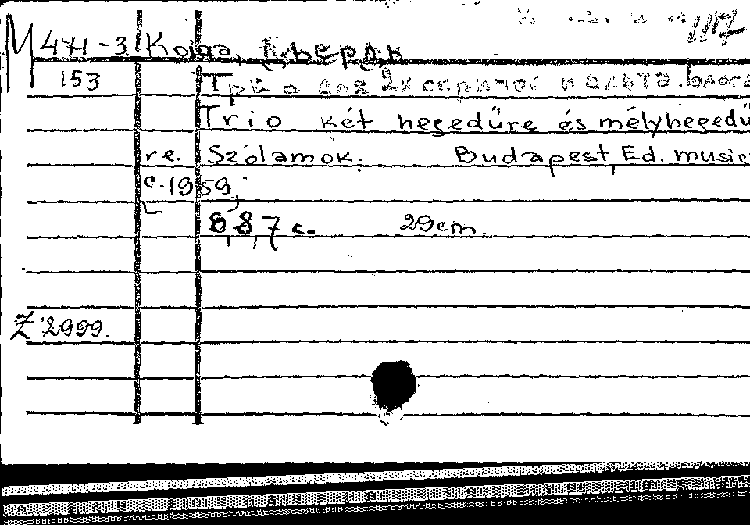 1117
M 471-3
153
Трио для 2х скрипок и альта.
Trio két hegedűre és mélyhegedű
re. Szólamok. Budapest, Ed. music
c.1959,
8,8,7 c. 29cm.
Z 2999.